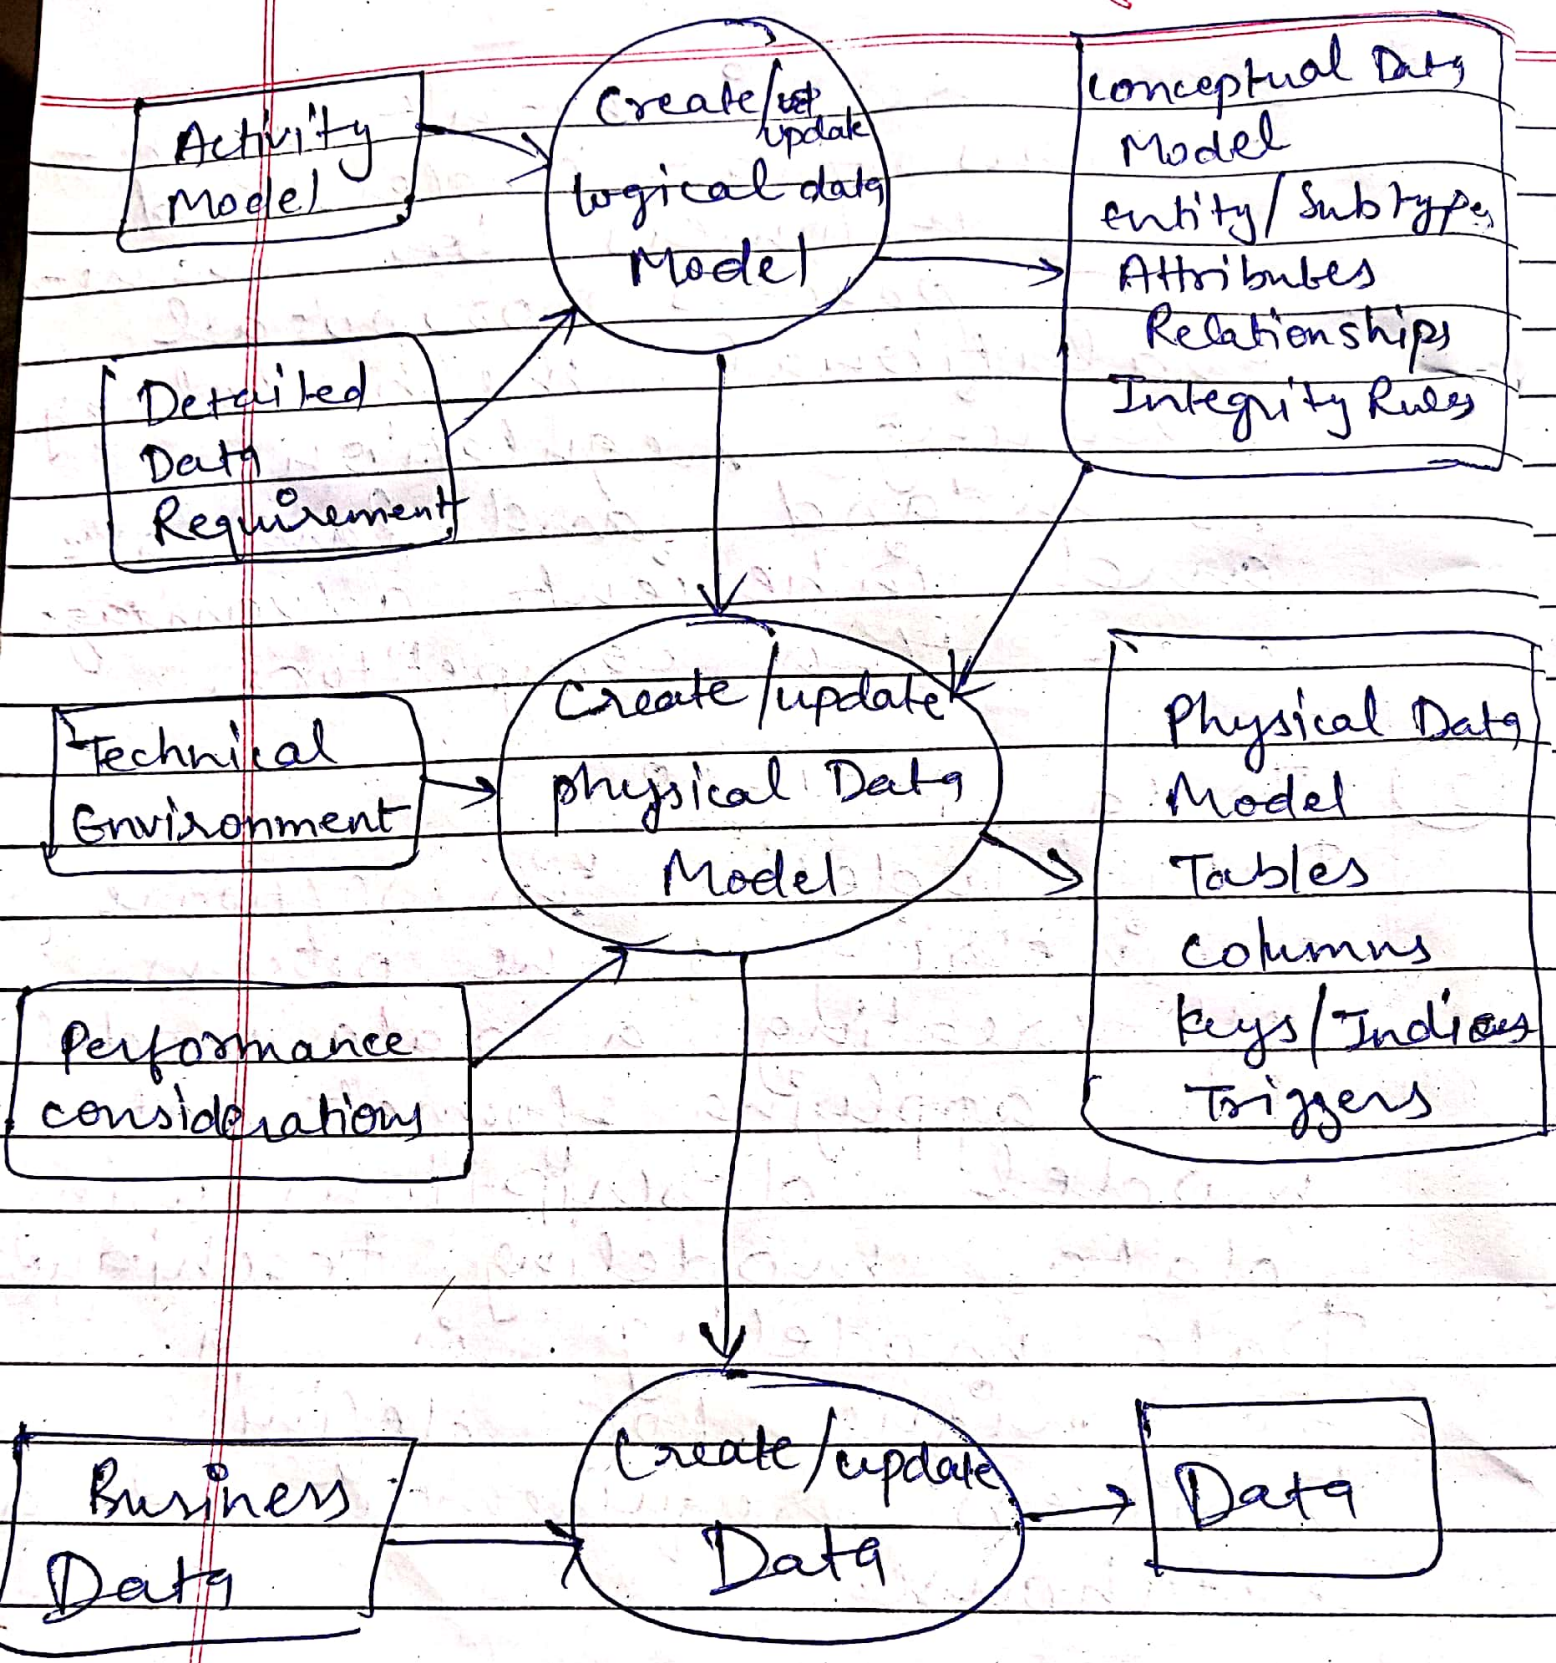 Activity
Model
Create/
update
logical data
Model
Conceptual Data
Model
Entity/Subtypes
Attributes
Relationships
Integrity Rules
Detailed
Data
Requirement
Technical
Environment
Create/update
physical Data
Model
Physical Data
Model
Tables
Columns
keys/Indices
Triggers
Performance
considerations
Business
Data
Create/update
Data
Data